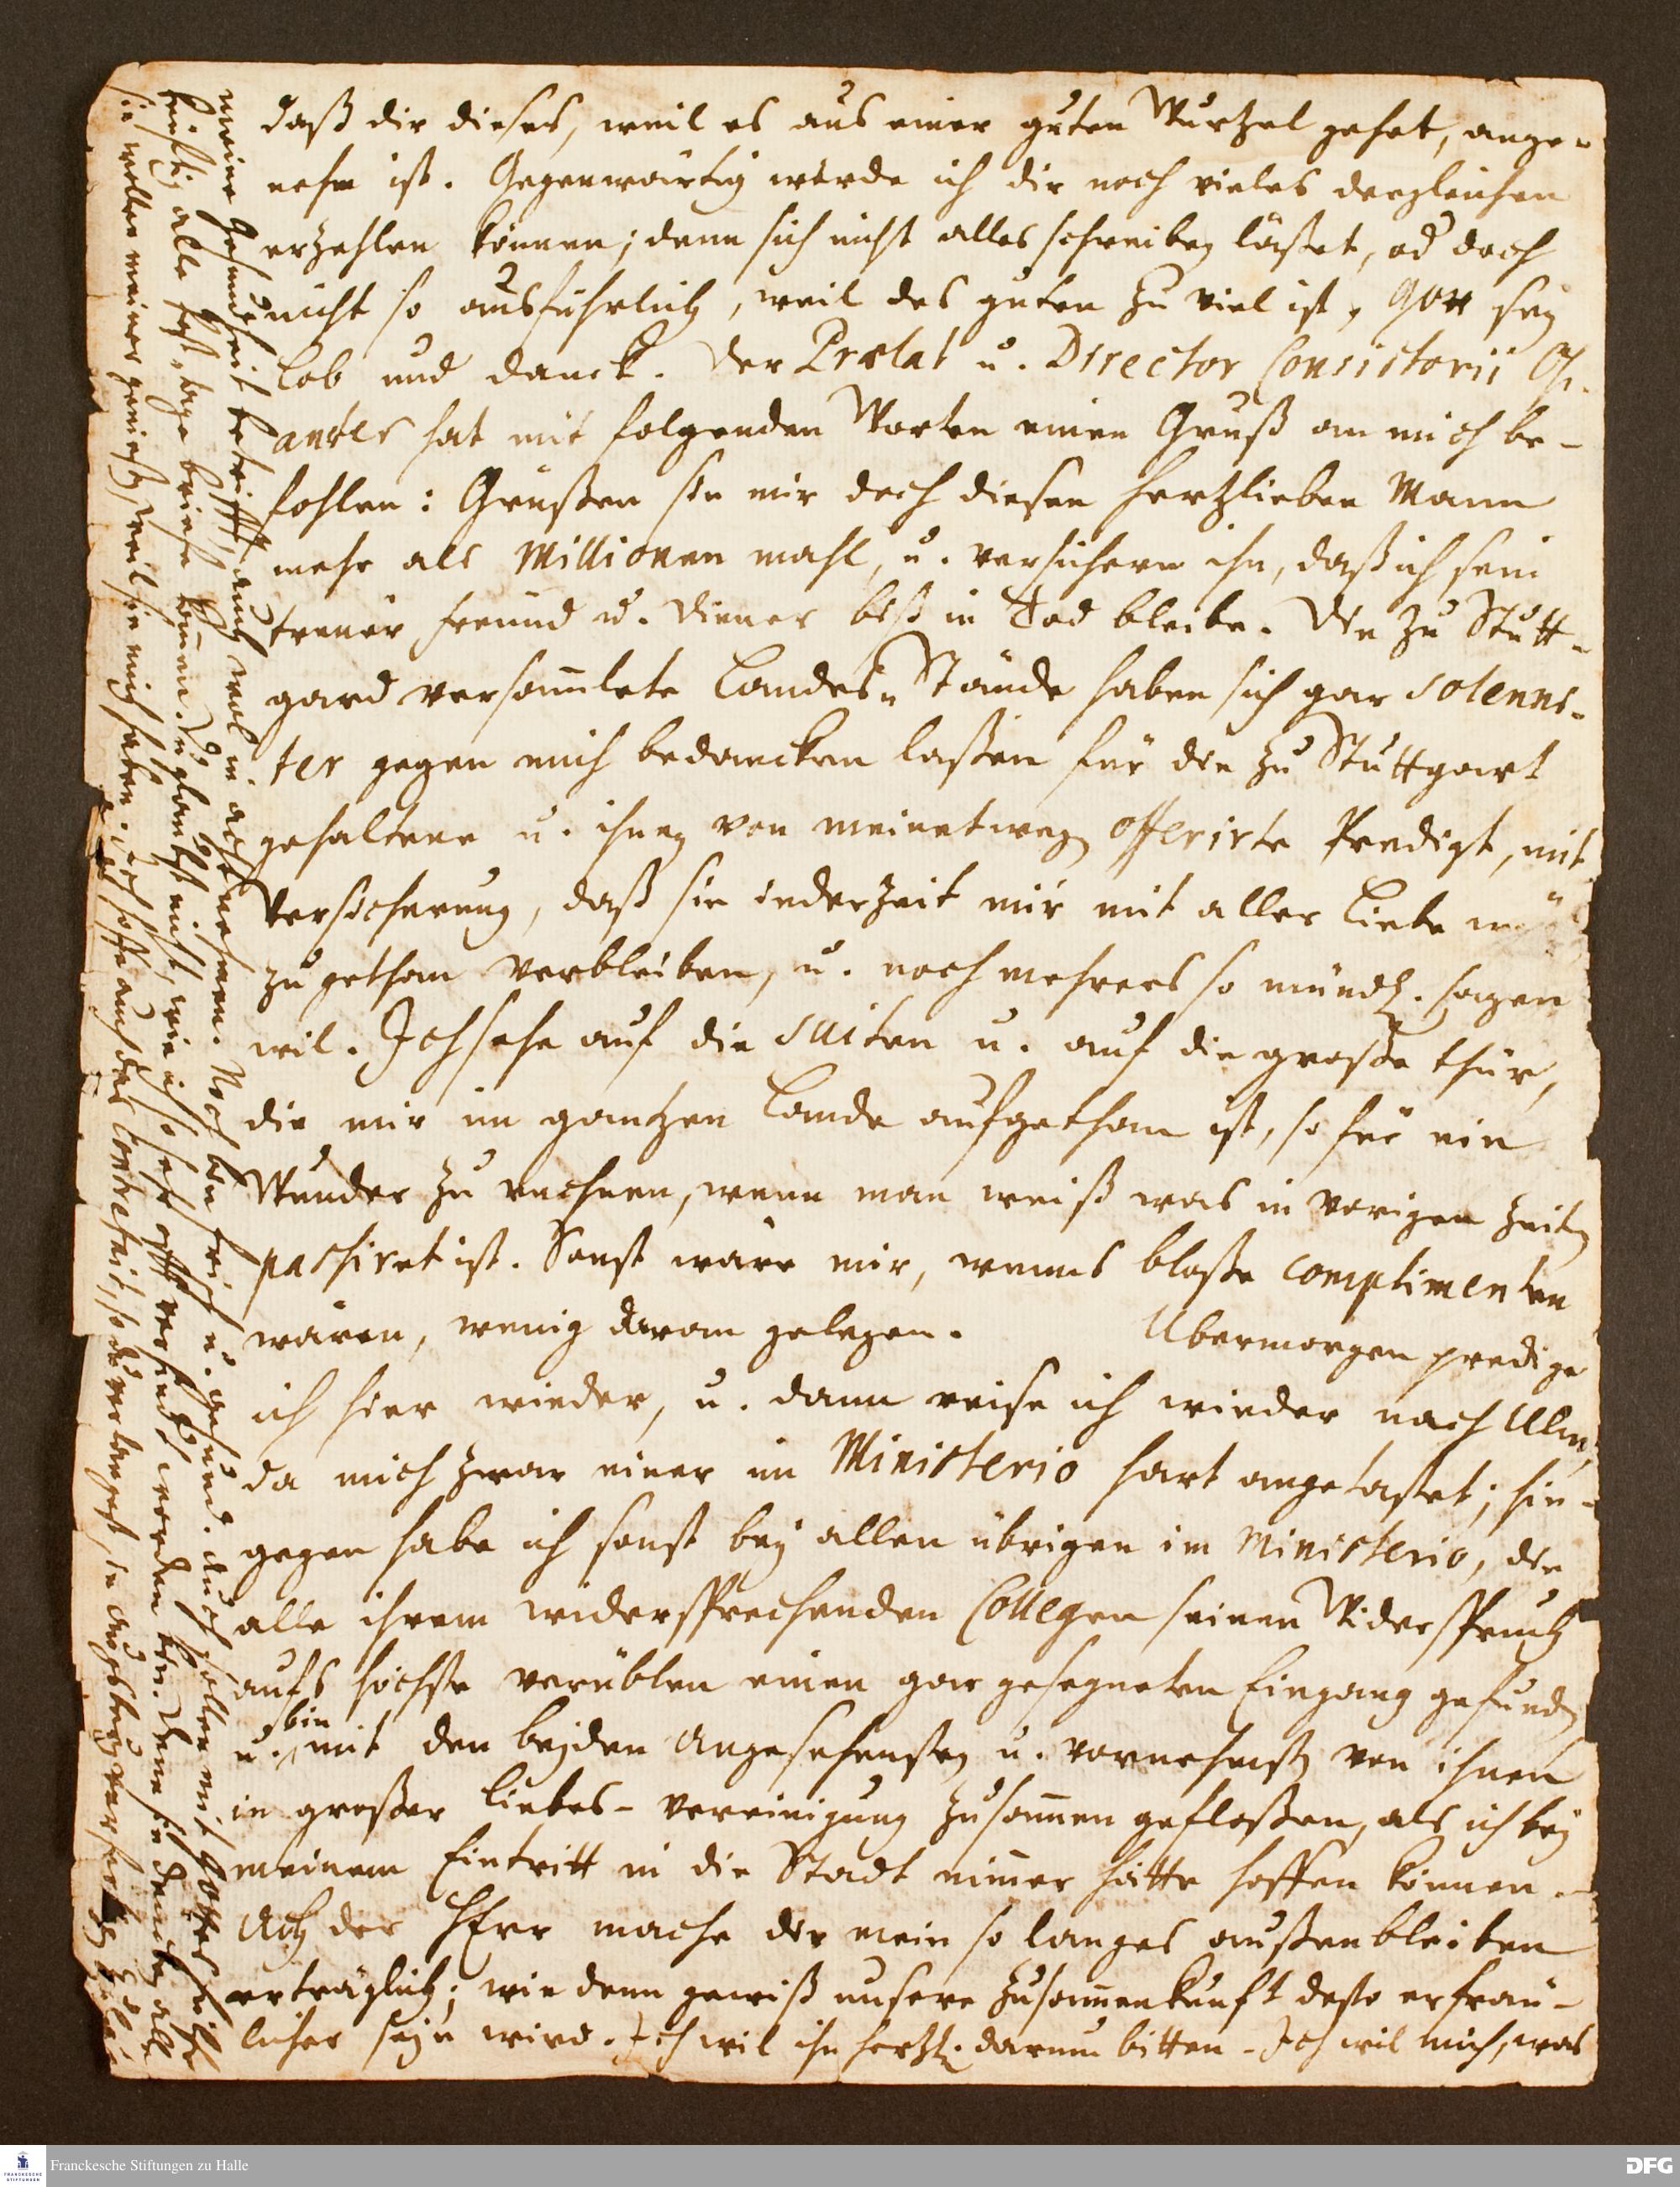 daß dir dieses, weil es aus einer guten Wurtzel gehet, ange-
nehm ist. Gegenwärtig würde ich dir noch vieles dergleichen
erzehlen können; denn sich nicht alles schreiben läßet, od doch
nicht so ausführlich, weil des guten zu viel ist, Gott sey
Lob und danck. Der Prælat u. Director Consistorii Osi-
ander hat mit folgenden Worten einen Gruß an mich be-
fohlen: Grüßen sie mir doch diesen hertzlieben Mann
mehr als Millionen mahl, u. versichern ihn, daß ich sein
treuer freund u. diener biß in Tod bleibe. Die zu Stutt-
gard versamlete Landes-Stände haben sich gar solenni-
ter gegen mich bedancken laßen für die zu Stuttgart
gehaltene u. ihnen von meinetwegen offerirte Predigt, mit
Versicherung, daß sie iederzeit mir mit aller Liebe
zugethan verbleiben, u. noch mehrers so mündl. sagen
wil. Ich sehe auf die suiten u. auf die große thür,
die mir im gantzen Lande aufgethan ist, so für ein
Wunder zu rechnen, wenn man weiß was in vorigen Zeiten
passiret ist. Sonst wäre mir, wenns bloße complimenten
wären, wenig daran gelegen. Ubermorgen predige
ich hier wieder, u. dann reise ich wieder nach Ulm,
da mich zwar einer im Ministerio hart angetastet; hin-
gegen habe ich sonst bey allen übrigen im Ministerio, die
alle ihrem widersprechenden Collegen seinen Widerspruch
aufs höchste verüblen einen gar gesegneten Eingang gefunden
u. bin mit den beyden Angesehensten u. vornehmsten von ihnen
in großer Liebes-Vereinigung zusammen gefloßen, als ich bey
meinem Eintritt in die Stadt nimmer hätte hoffen können.
Ach der HErr mache dir mein so langes außenbleiben
erträglich; wie denn gewiß unsere Zusammenkunft desto erfreu-
licher seyn wird. Ich wil ihn hertzl. darum bitten. Ich wil mich, was
meine Gesundheit betrifft, auch wol in acht nehmen. Noch bin frisch u. gesund. auch sollen mit Gottes hülfe
künftig alle Post-tage briefe kommen. Du glaubst nicht, wie ich so sehr offt verhindert worden bin. Denn sie dencken alle
sie wollen meiner genießen, weil sie mich haben. Ich hoffe auch das Contrefait, so du verlangest, in Augsburg verfertigen zu laßen
Franckesche Stiftungen zu Halle
FRANCKESCHE STIFTUNGEN
DFG